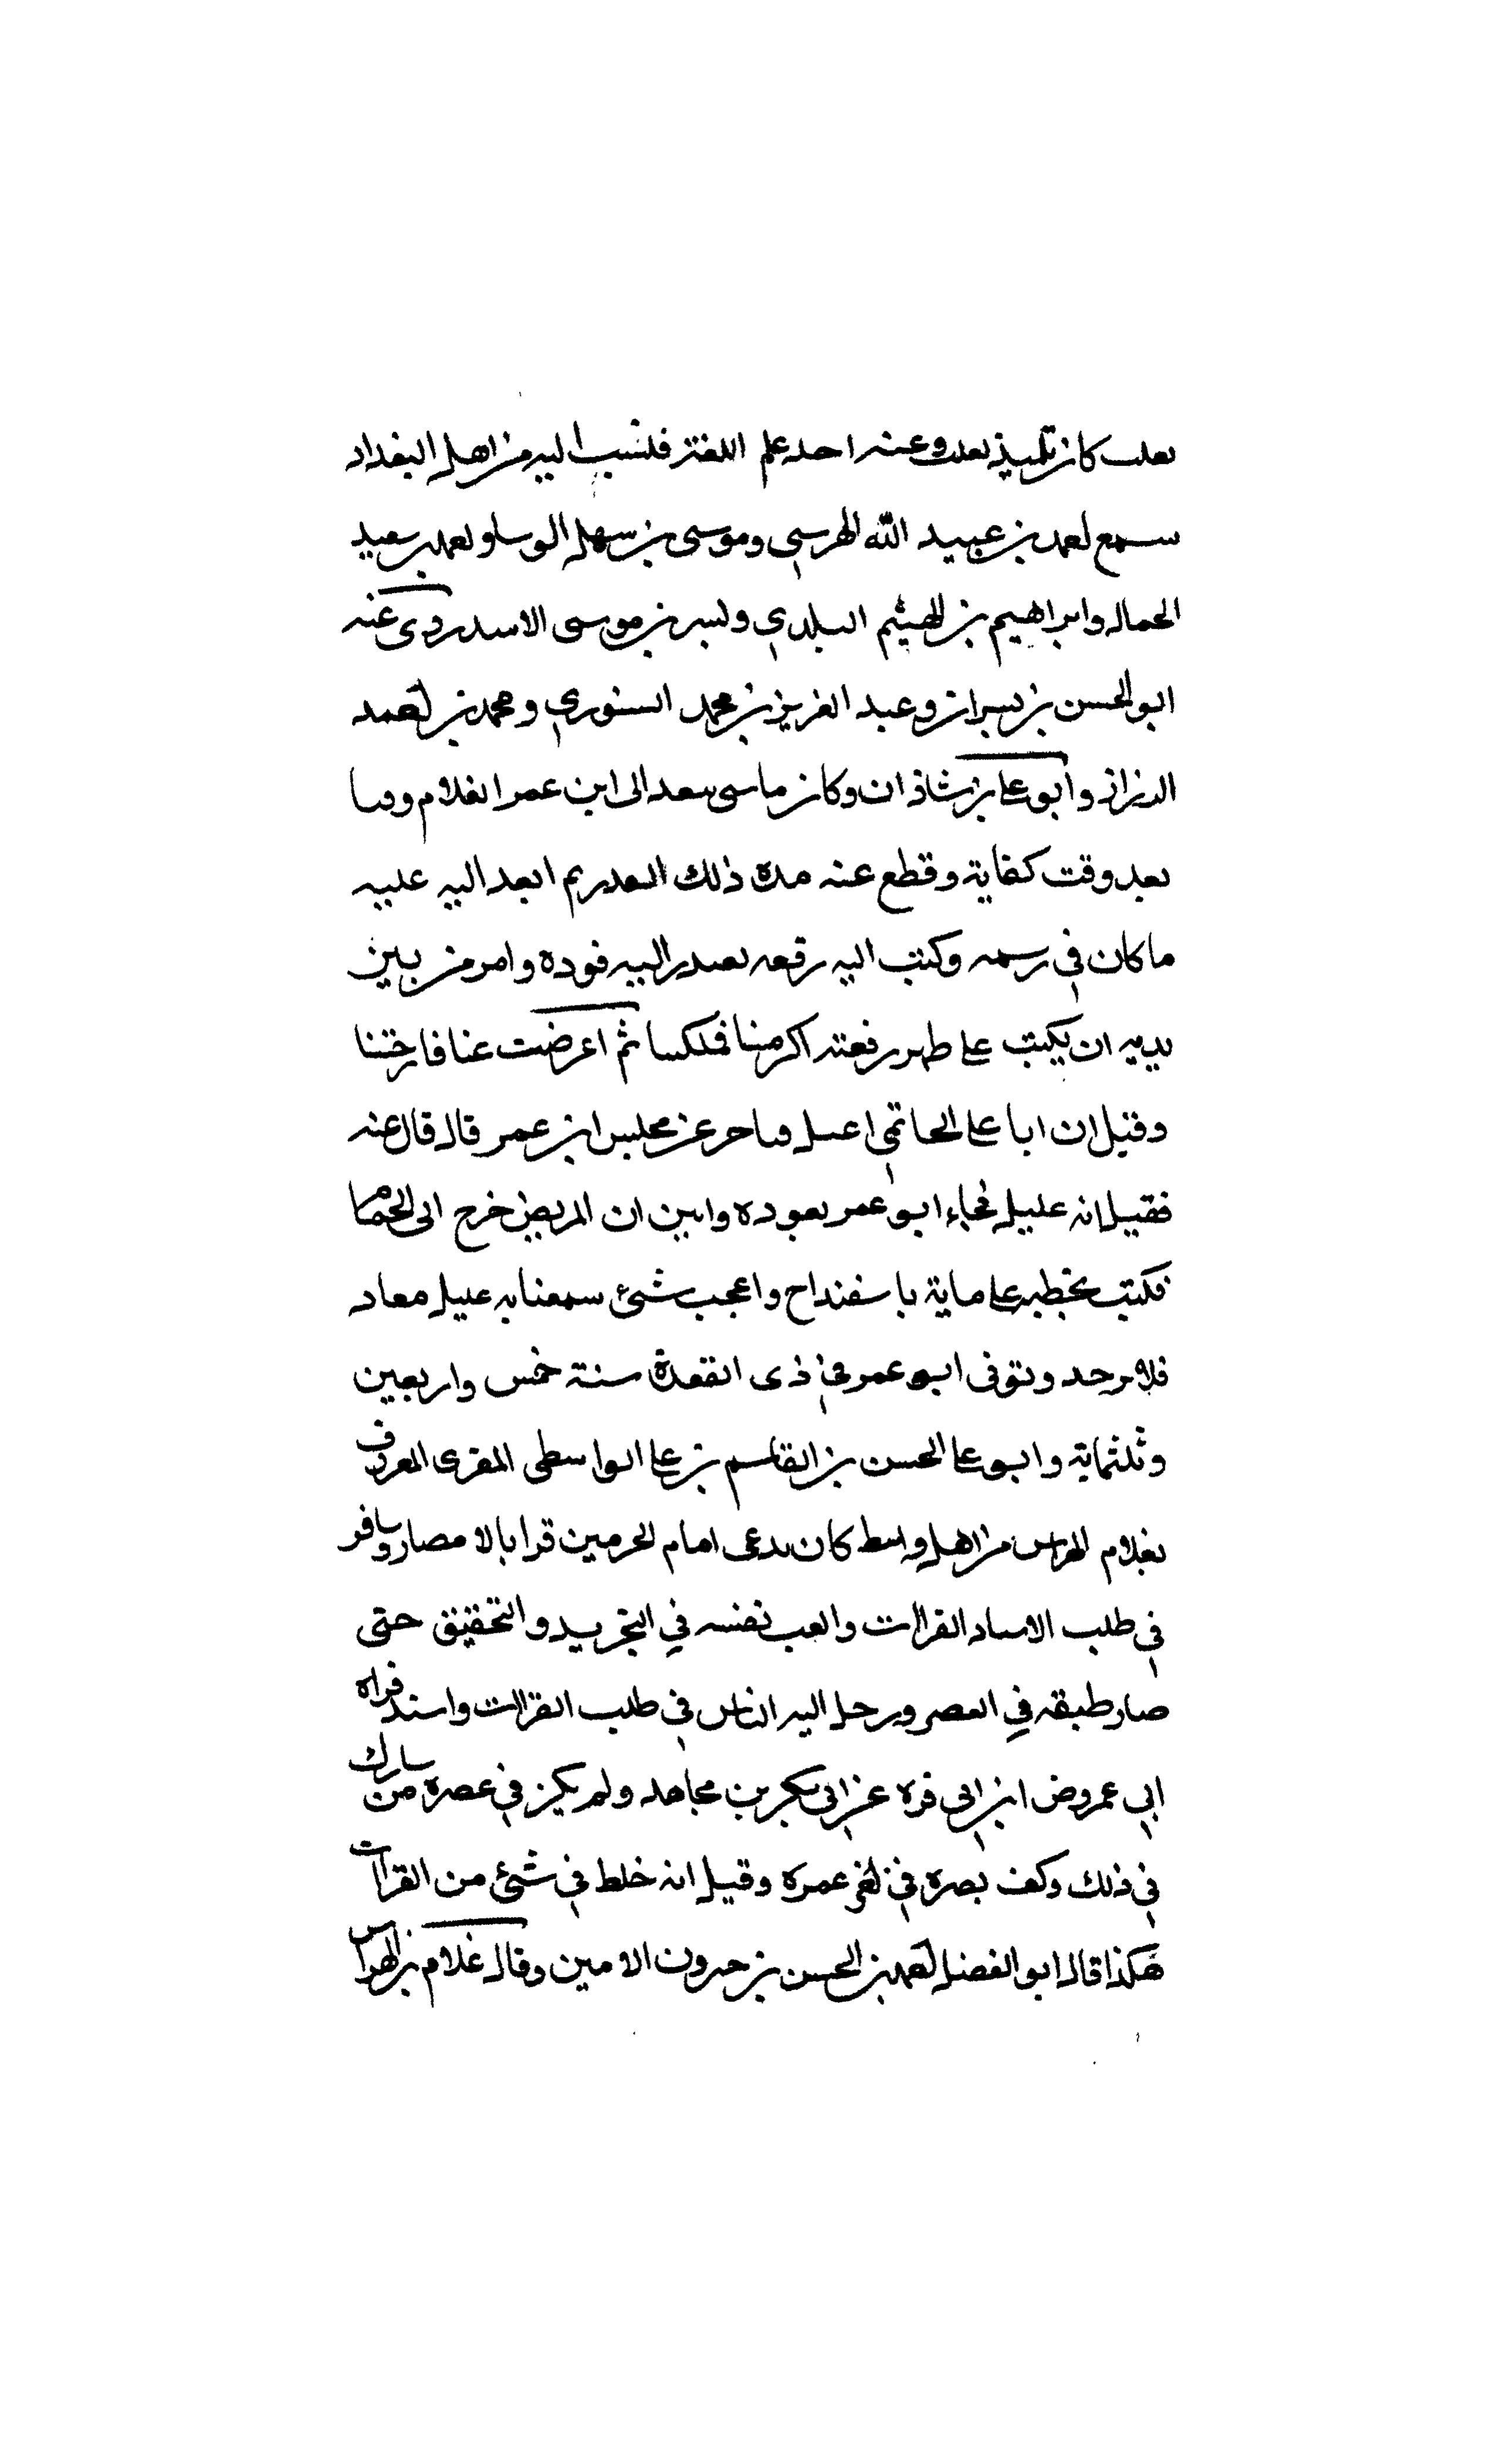 ثعلب كان تلميذ ثعلب وعنه احد علم اللغة فنسب اليه من اهل البغداد
سمع احمد بن عبيد الله النرسي وموسى بن سهل الوسا واحمد بن سعيد
الحمال وابراهيم بن الهيثم البلدي وبشر بن موسى الاسد روى عنه
ابو الحسن بن بسران وعبد العزيز بن محمد الستوري ومحمد بن احمد
البزاز وابو علي بن شاذان وكان ماسى سعد الى ابن عمر الغلام وقتا
بعد وقت كفاية وقطع عنه مدة ذلك لعذر ثم ابعد اليه عليه
ما كان في رسمه وكتب اليه رقعه بعدر اليه فوده وامر من بين
يديه ان يكتب على ظهر رقعته اكرمتنا فملكتنا ثم اعرضت عنا فارحتنا
وقيل ان ابا علي الحاتمي اعتل فتاخر عن مجلس ابن عمر قال قال عنه
فقيل انه عليل فجاء ابو عمر يعوده وابين ان المريض خرج الى الحمام
فكتب بخطه على ماية باسفنداج واعجب شئ سمعنا به عليل معاد
فلا يوحد وتوفى ابو عمر في ذى القعدة سنة خمس واربعين
وثلثماية وابو علي الحسن بن القاسم بن علي الواسطى المقرى المعروف
بغلام الهراس من اهل واسط كان يدعى امام الحرمين قرا بالامصار وسافر
في طلب الاسناد القراات واتعب نفسه في التجريد والتحقيق حتى
صار طبقه في العصر ورحل اليه الناس في طلب القراات واسند قراه
ابي عمرو ض ابن ابى قره عن ابى بكر بن مجاهد ولم يكن في عصره من يشارك
في ذلك وكف بصره في اخر عمره وقيل انه خلط في شئ من القراات
هكذا قال ابو الفضل احمد بن الحسن بن خيرون الامين وقال غلام بن الهراس